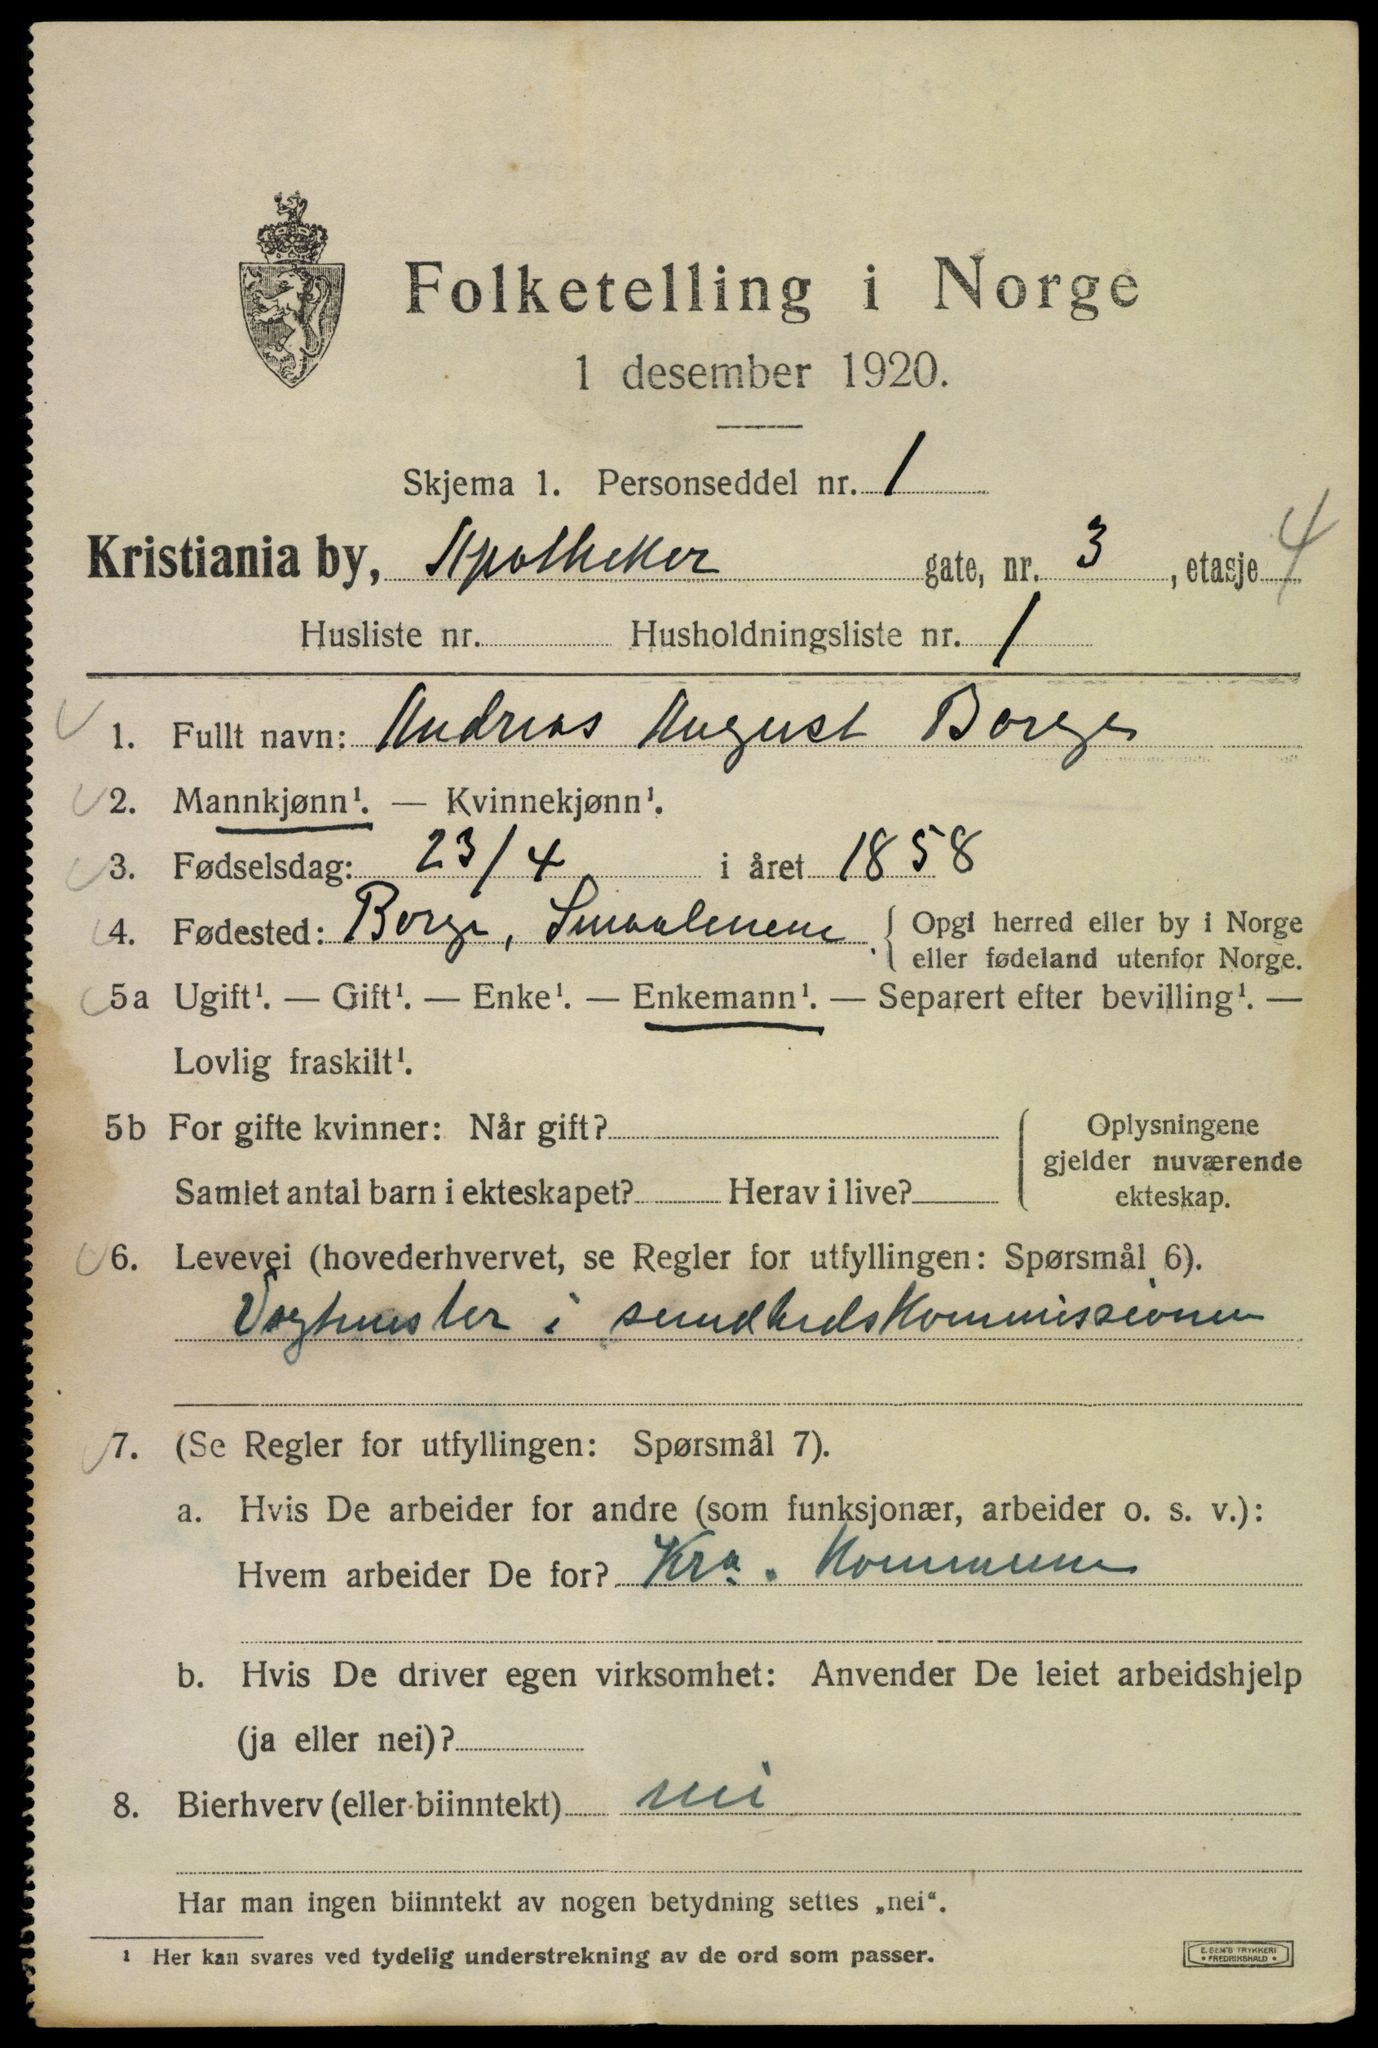 Folketelling i Norge
1 desember 1920.
Skjema 1. Personseddel nr. 1
Kristiania by, Apotheker gate, nr. 3, etasje 4
Husliste nr. Husholdningsliste nr. 1
1. Fullt navn: Andreas August Borge
2. Mannkjønn¹. — Kvinnekjønn¹.
3. Fødselsdag: 23/4 i året 1858
4. Fødested: Borge, Smaalenene { Opgi herred eller by i Norge
eller fødeland utenfor Norge.
5a Ugift¹. — Gift¹. — Enke¹. — Enkemann¹. — Separert efter bevilling¹. —
Lovlig fraskilt¹.
5b For gifte kvinner: Når gift? { Oplysningene
gjelder nuværende
Samlet antal barn i ekteskapet? Herav i live? ekteskap.
6. Levevei (hovederhvervet, se Regler for utfyllingen: Spørsmål 6).
Vagtmester i sundhedskommissionen
7. (Se Regler for utfyllingen: Spørsmål 7).
a. Hvis De arbeider for andre (som funksjonær, arbeider o. s. v.):
Hvem arbeider De for? Kra. Kommune
b. Hvis De driver egen virksomhet: Anvender De leiet arbeidshjelp
(ja eller nei)?
8. Bierhverv (eller biinntekt) nei
Har man ingen biinntekt av nogen betydning settes „nei“.
¹ Her kan svares ved tydelig understrekning av de ord som passer.
E. SEM'S TRYKKERI
• FREDRIKSHALD •